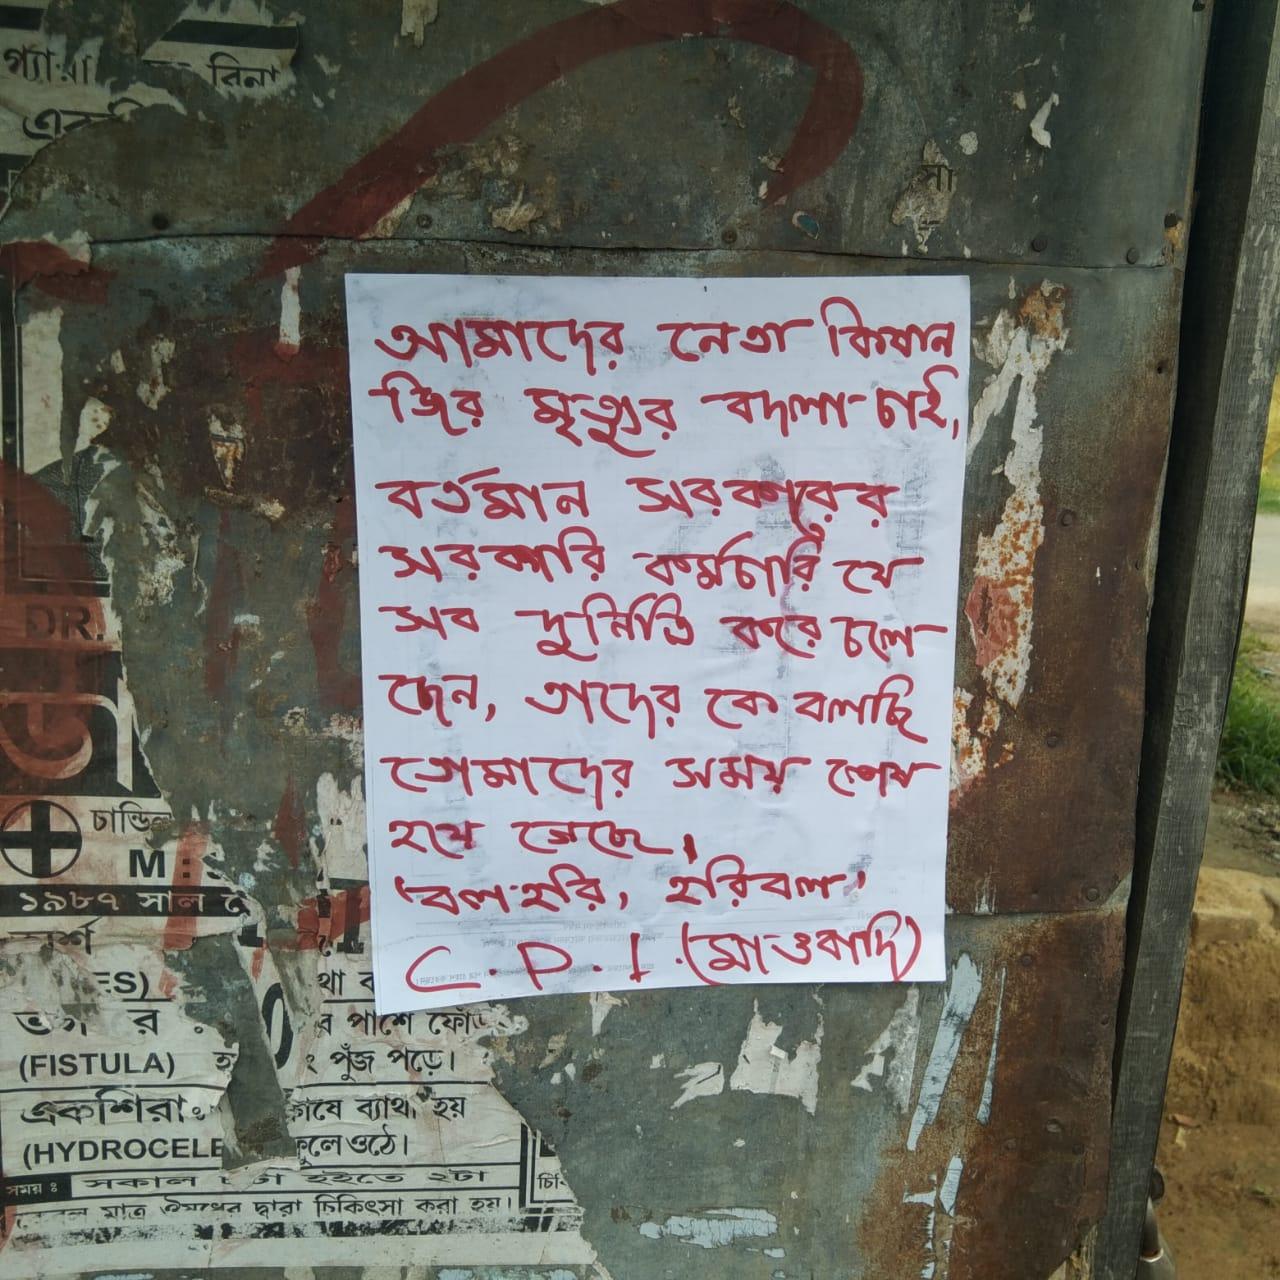 রিনা
সা
আমাদের নেতা কিষান
জির মৃত্যুর বদলা চাই,
বর্তমান সরকারের
সরকারি কর্মচারি যে
সব দুর্নিতি করে চলে
ছেন, তাদের কে বলছি
তোমাদের সময় শেষ
হয়ে গেছে,
'বল হরি, হরিবল'
C.P.I.(মাওবাদি)
DR.
চান্ডিল
M:
১৯৮৭ সাল
ES)
থা
র :
র পাশে
(FISTULA)
পুঁজ পড়ে।
একশিরাঃ
ব্যাথা হয়
(HYDROCELE
ফুলে ওঠে।
সময় ঃ সকাল
টা হইতে ২টা
মাত্র ঔষধের দ্বারা চিকিৎসা করা হয়।